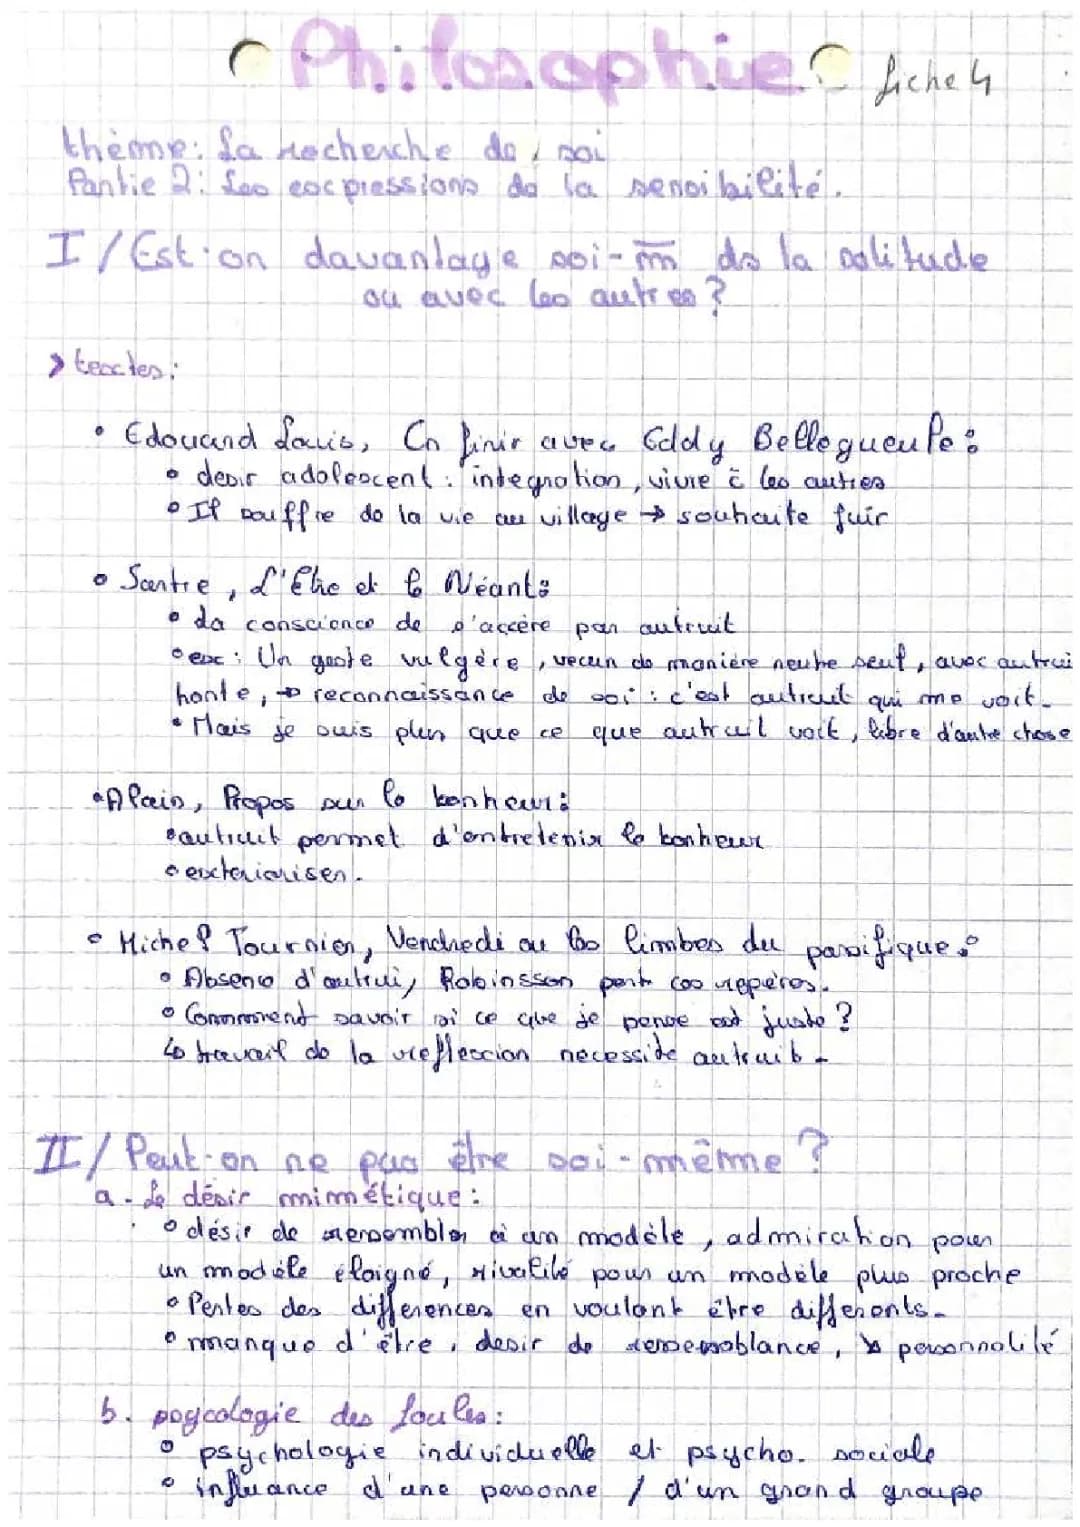 Philosophie fiche 4
thème: La recherche de soi
Partie 2: Les expressions de la sensibilité.
I / Est-on davantage soi-m̄ ds la solitude
ou avec les autres ?
> textes :
• Edouard Louis, En finir avec Eddy Bellegueule :
• desir adolescent : integration, vivre c̄ les autres
• Il souffre de la vie au village → souhaite fuir
• Sartre, L'Être et le Néant :
• La conscience de s'accère par autruit
• ex : Un geste vulgère, vecun de manière neutre seul, avec autrui
honte, → reconnaissance de soi : c'est autruit qui me voit.
• Mais je suis plus que ce que autruil voit, libre d'autre chose
• Alain, Propos sur le bonheur :
• autruit permet d'entretenir le bonheur
• exteriorisen.
• Michel Tournier, Vendredi ou les limbes du passifique :
• Absence d'autrui, Robinsson perd ces repères.
• Comment savoir si ce que je pense est juste ?
↳ travail de la reflexion necessite autruit.
II / Peut-on ne pas être soi-même ?
a. Le désir mimétique :
• désir de ressembler à un modèle, admiration pour
un modèle éloigné, rivalité pour un modèle plus proche
• Pertes des differences en voulant être differents.
• manque d'être, desir de ressemblance, ↘ personnalité
b. psycologie des foules :
• psychologie individuelle et psycho. sociale
• influance d'une personne / d'un grand groupe